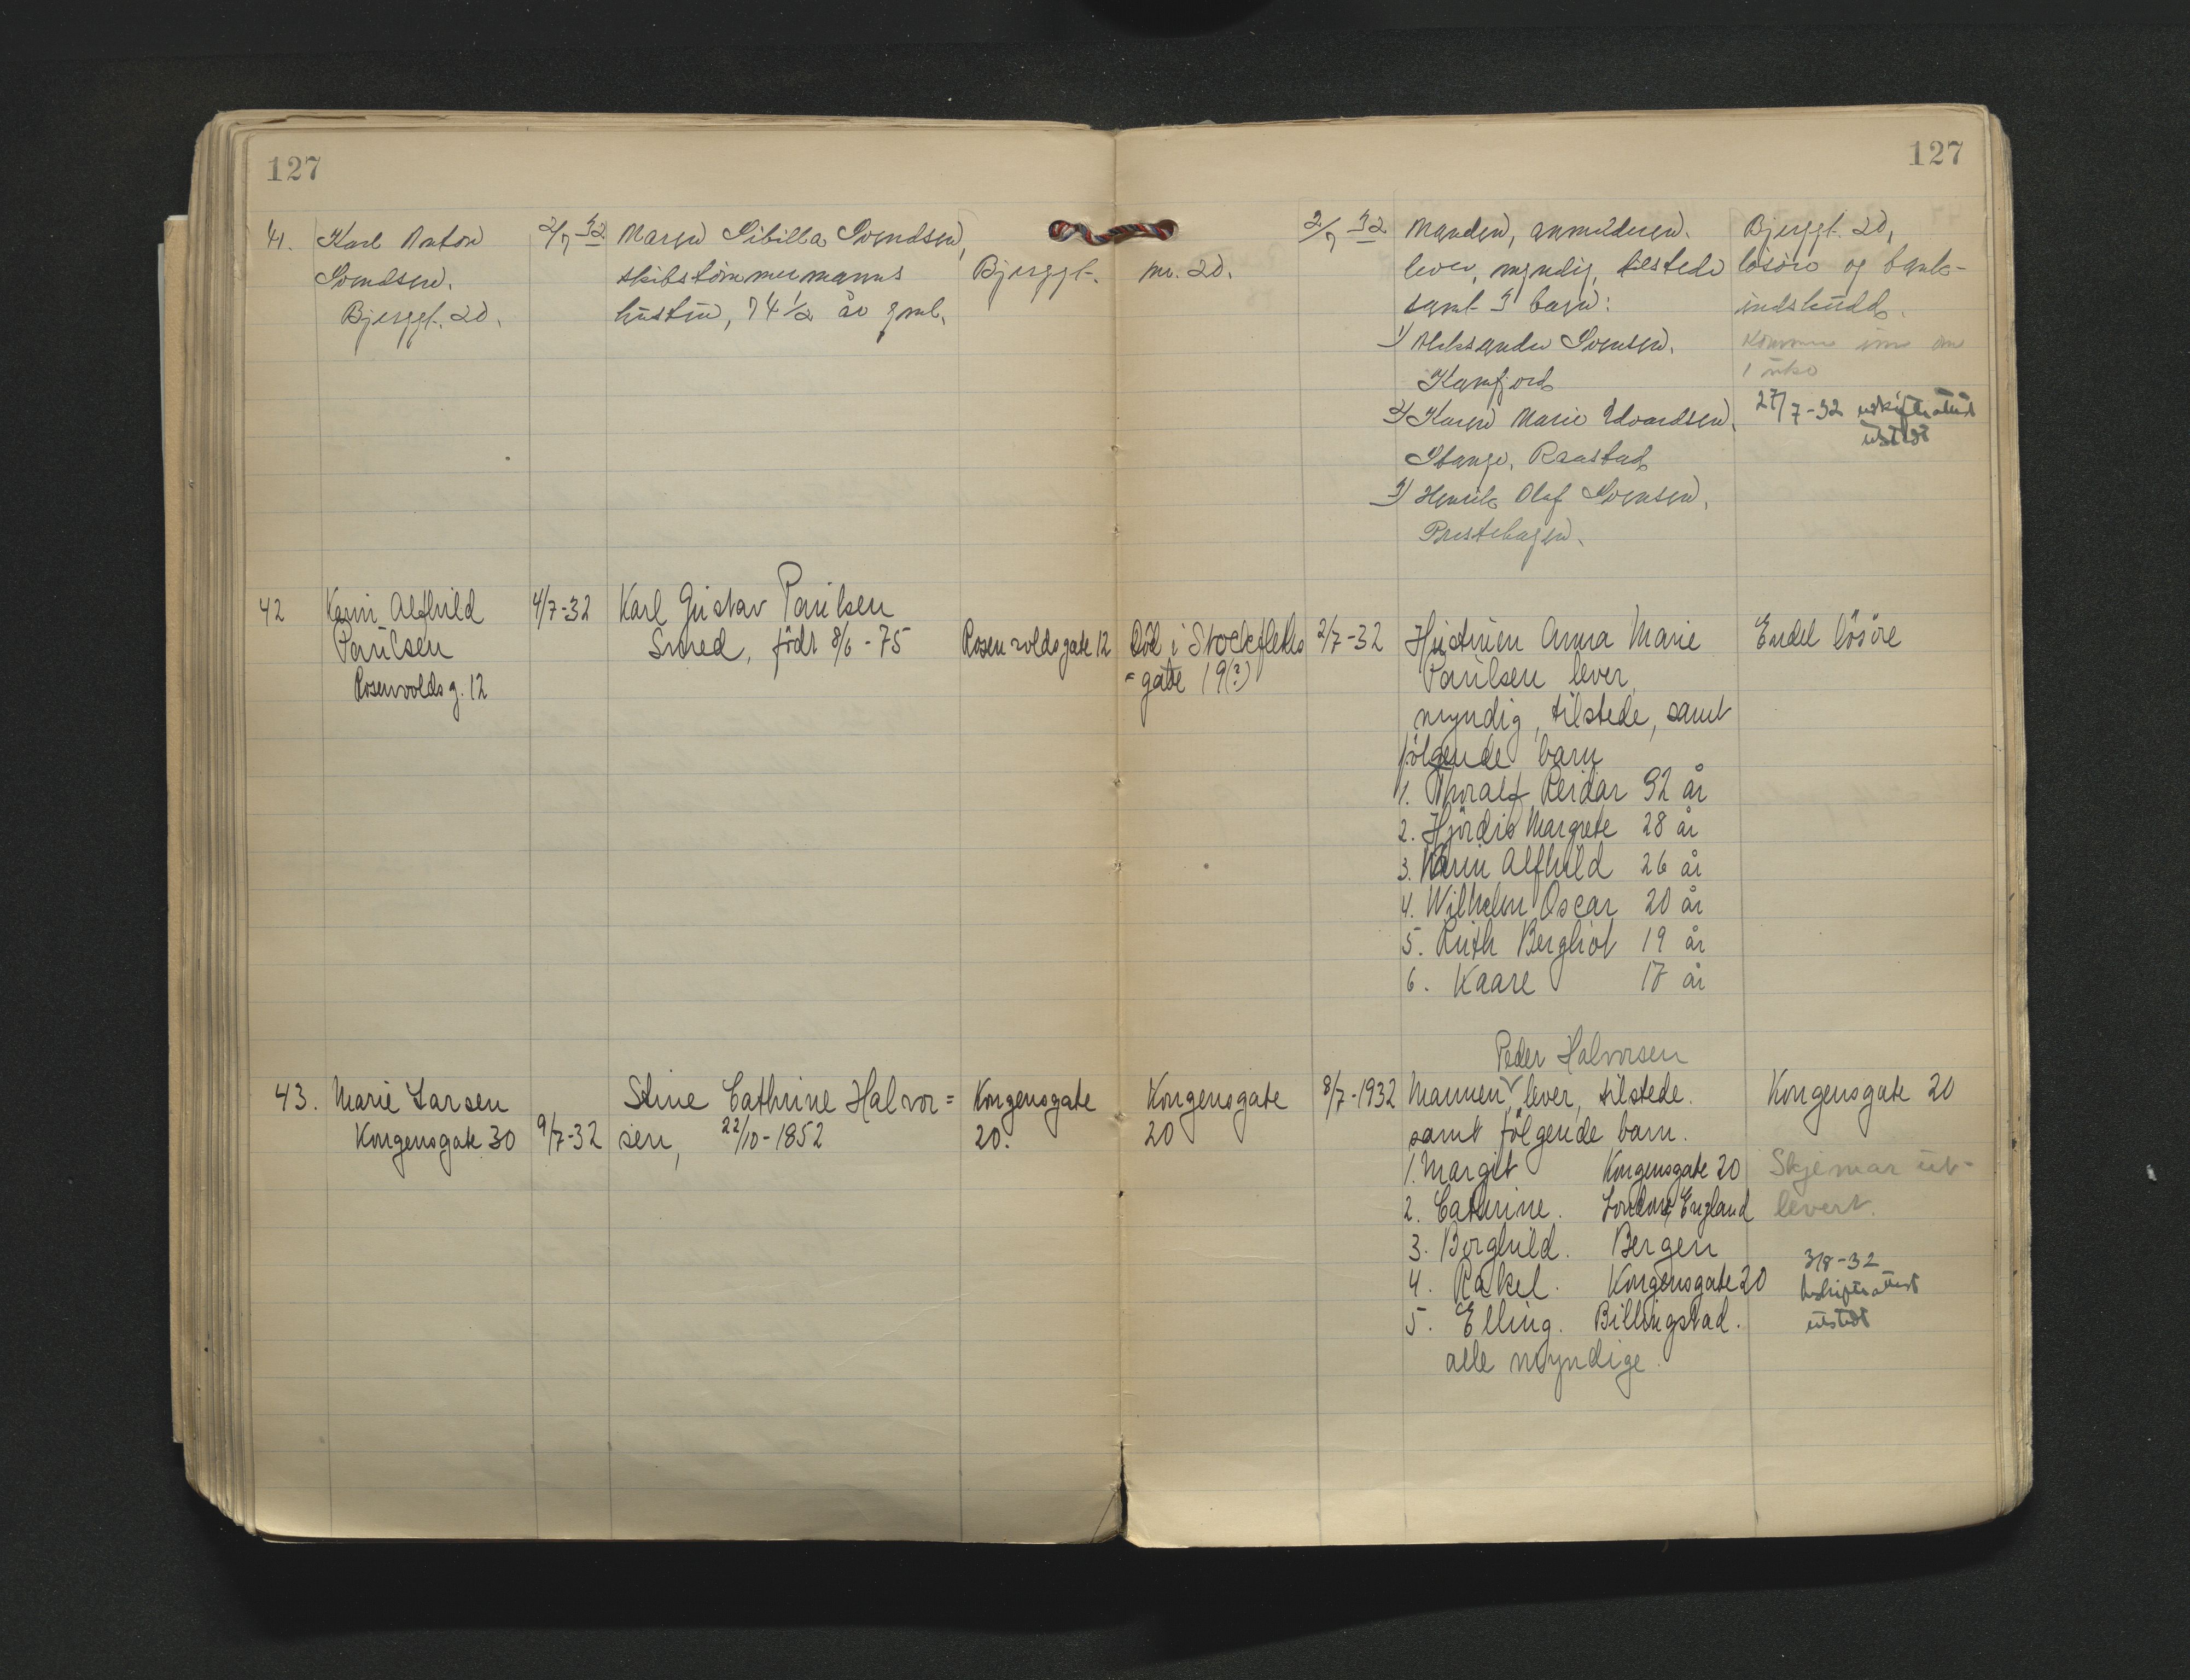 127
127
41. Karl Anton
Svendsen.
Bjerggt. 20.
2/7 32
Maren Sibilla Svendsen,
skibstømmermanns
hustru, 74 1/2 år gml.
Bjerggt.
nr. 20.
2/7 32
Manden, anmelderen.
lever, myndig, tilstede
samt 3 barn:
1) Aleksander Svensen.
Kamfjord
2) Karen Marie Edvardsen.
Stange, Raastad
3) Henrik Olaf Svensen,
Prestehagen.
Bjerggt. 20,
løsøre og bank-
indskudd.
Kommer inn om
1 uke
27/7-32 uskifteattest
utstedt
42
Karin Alfhild
Paulsen
Rosenvolds g. 12
4/7-32
Karl Gustav Paulsen
Smed, født 8/6-75
Rosenvoldsgate 12
Død i Stockfleths
=gate (9(?)
2/7-32
Hustruen Anna Marie
Paulsen lever,
myndig, tilstede, samt
følgende barn
1. Thoralf Reidar 32 år
2. Hjørdis Margrete 28 år
3. Karin Alfhild 26 år
4. Wilhelm Oscar 20 år
5. Ruth Bergliot 19 år
6. Kaare 17 år
Endel løsøre
43. Marie Larsen
Kongensgate 30
9/7-32
Stine Cathrine Halvor=
sen, 22/10-1852
Kongensgate
20.
Kongensgate
20
8/7-1932
Peder Halvorsen
Mannen lever, tilstede.
samt følgende barn.
1. Margit Kongensgate 20
2. Cathrine. London, England
3. Borghild. Bergen
4. Rakel. Kongensgate 20
5. Elling. Billingstad.
alle myndige.
Kongensgate 20
Skjemaer ut-
levert.
3/8-32
uskifteattest
utstedt